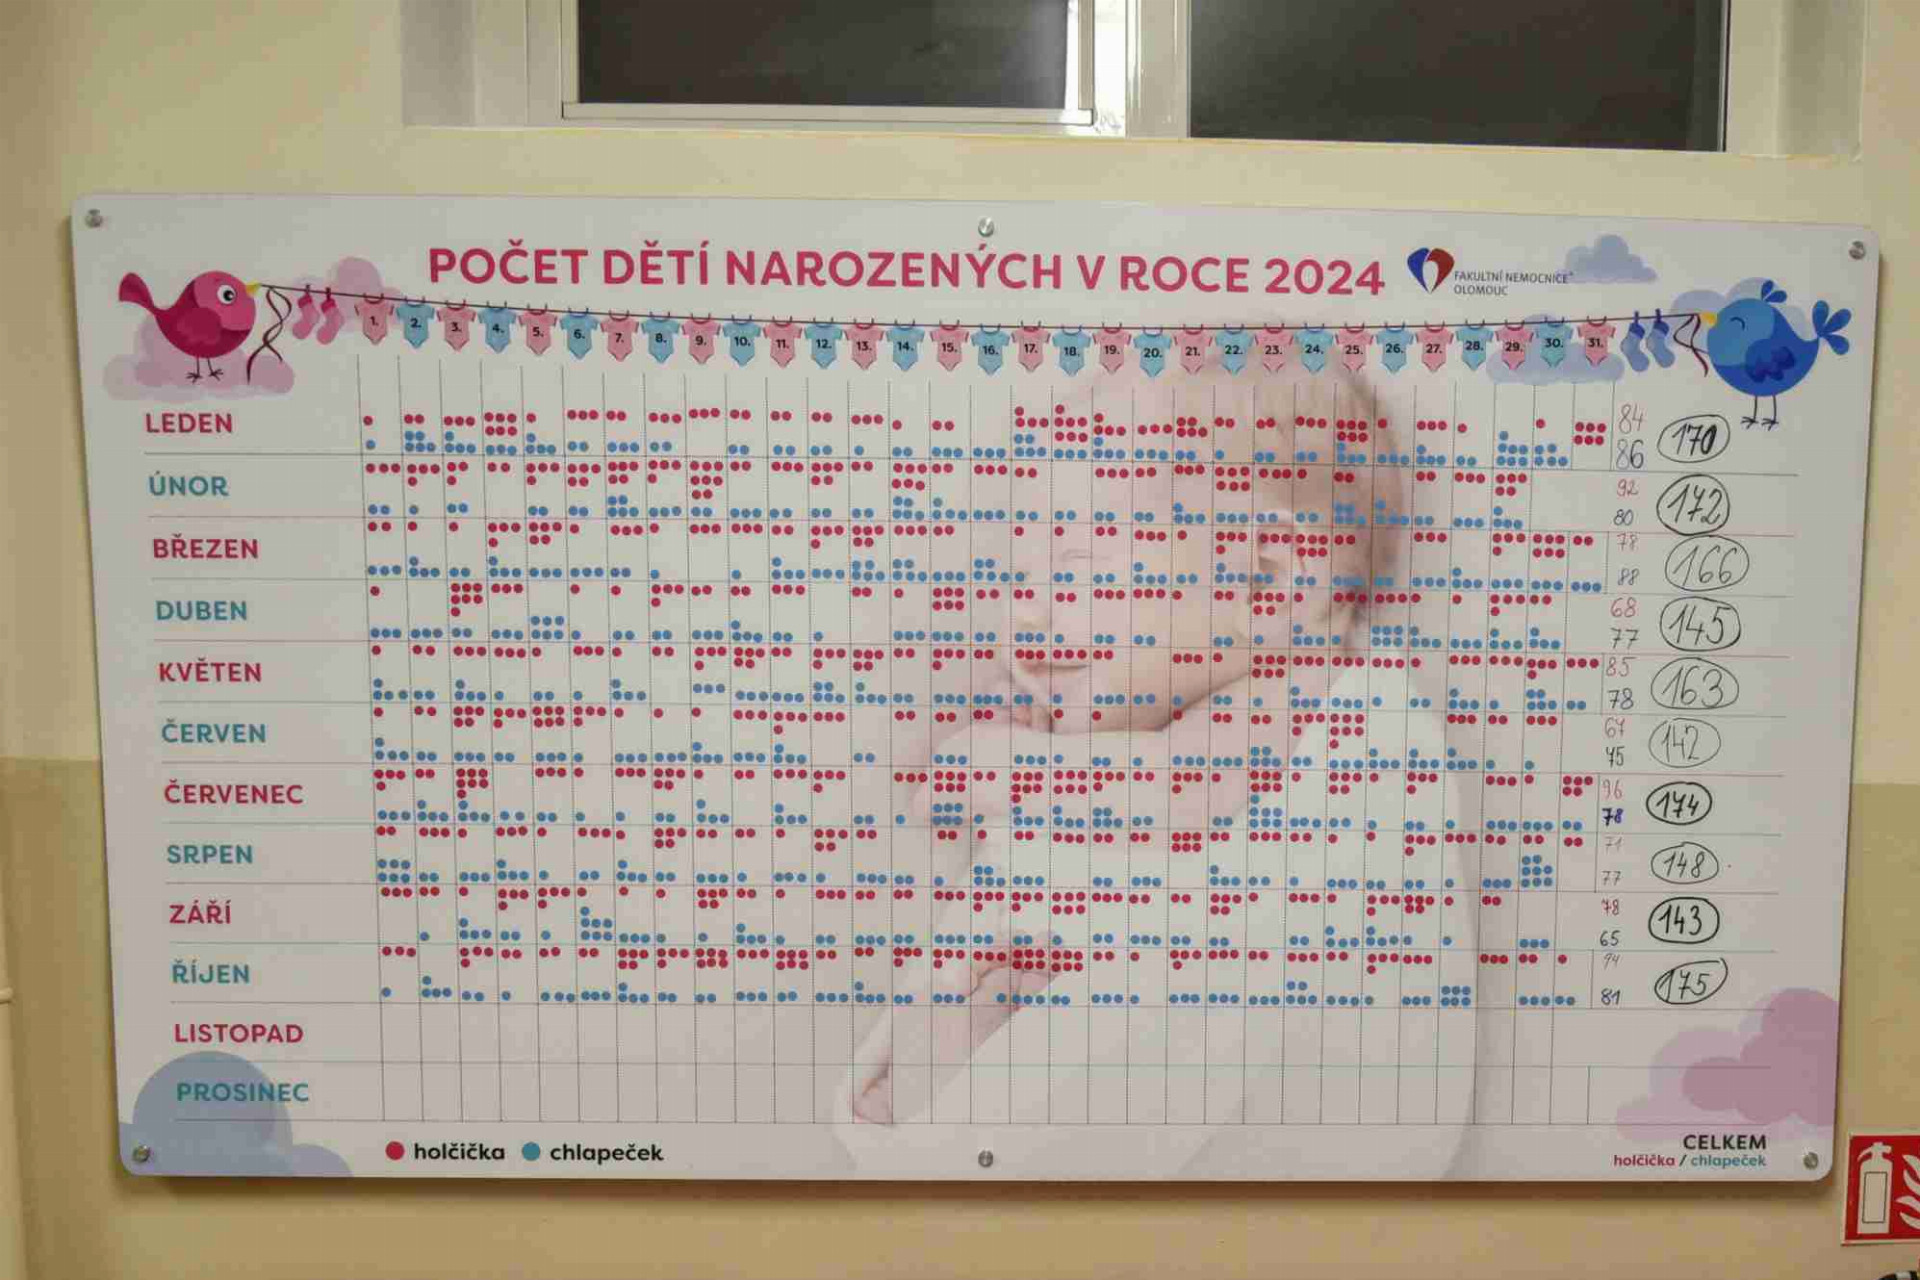 POČET DĚTÍ NAROZENÝCH V ROCE 2024
FAKULTNÍ NEMOCNICE
OLOMOUC
1. 2. 3. 4. 5. 6. 7. 8. 9. 10. 11. 12. 13. 14. 15. 16. 17. 18. 19. 20. 21. 22. 23. 24. 25. 26. 27. 28. 29. 30. 31.
LEDEN 84 86 170
ÚNOR 92 80 172
BŘEZEN 78 88 166
DUBEN 68 77 145
KVĚTEN 85 78 163
ČERVEN 67 75 142
ČERVENEC 96 78 174
SRPEN 71 77 148
ZÁŘÍ 78 65 143
ŘÍJEN 94 81 175
LISTOPAD
PROSINEC
holčička chlapeček
CELKEM
holčička / chlapeček